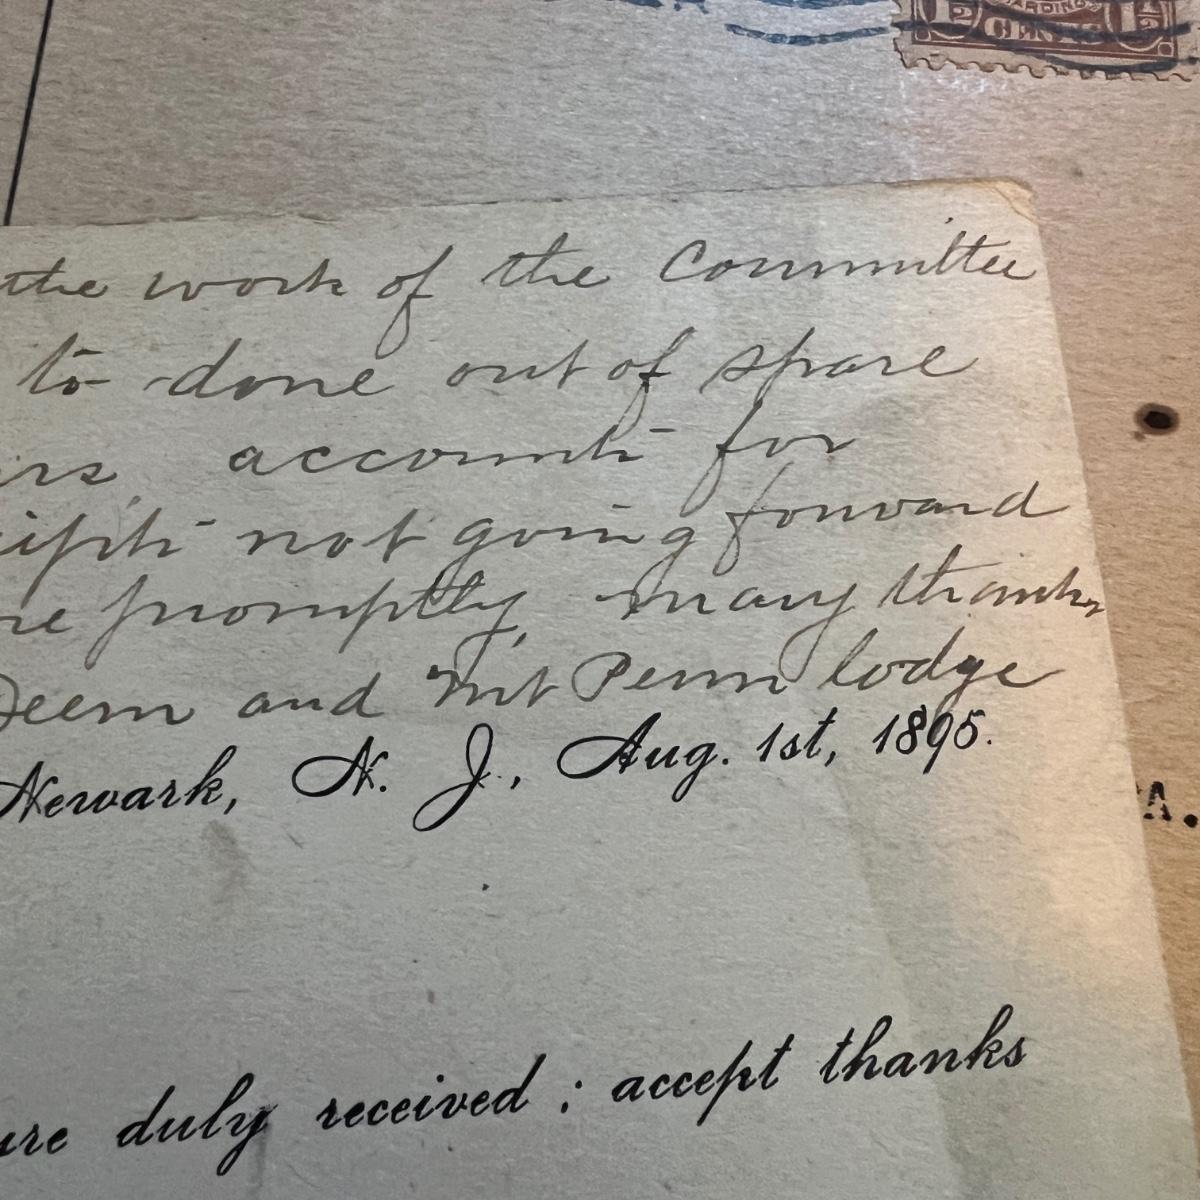 HARDING
1½ CENTS 1½
the work of the Committee
to done out of spare
irs accounts for
eipts not going forward
re promptly, many thanks
Deem and Mt Penn lodge
Newark, N. J., Aug. 1st, 1895.
A.
ure duly received; accept thanks